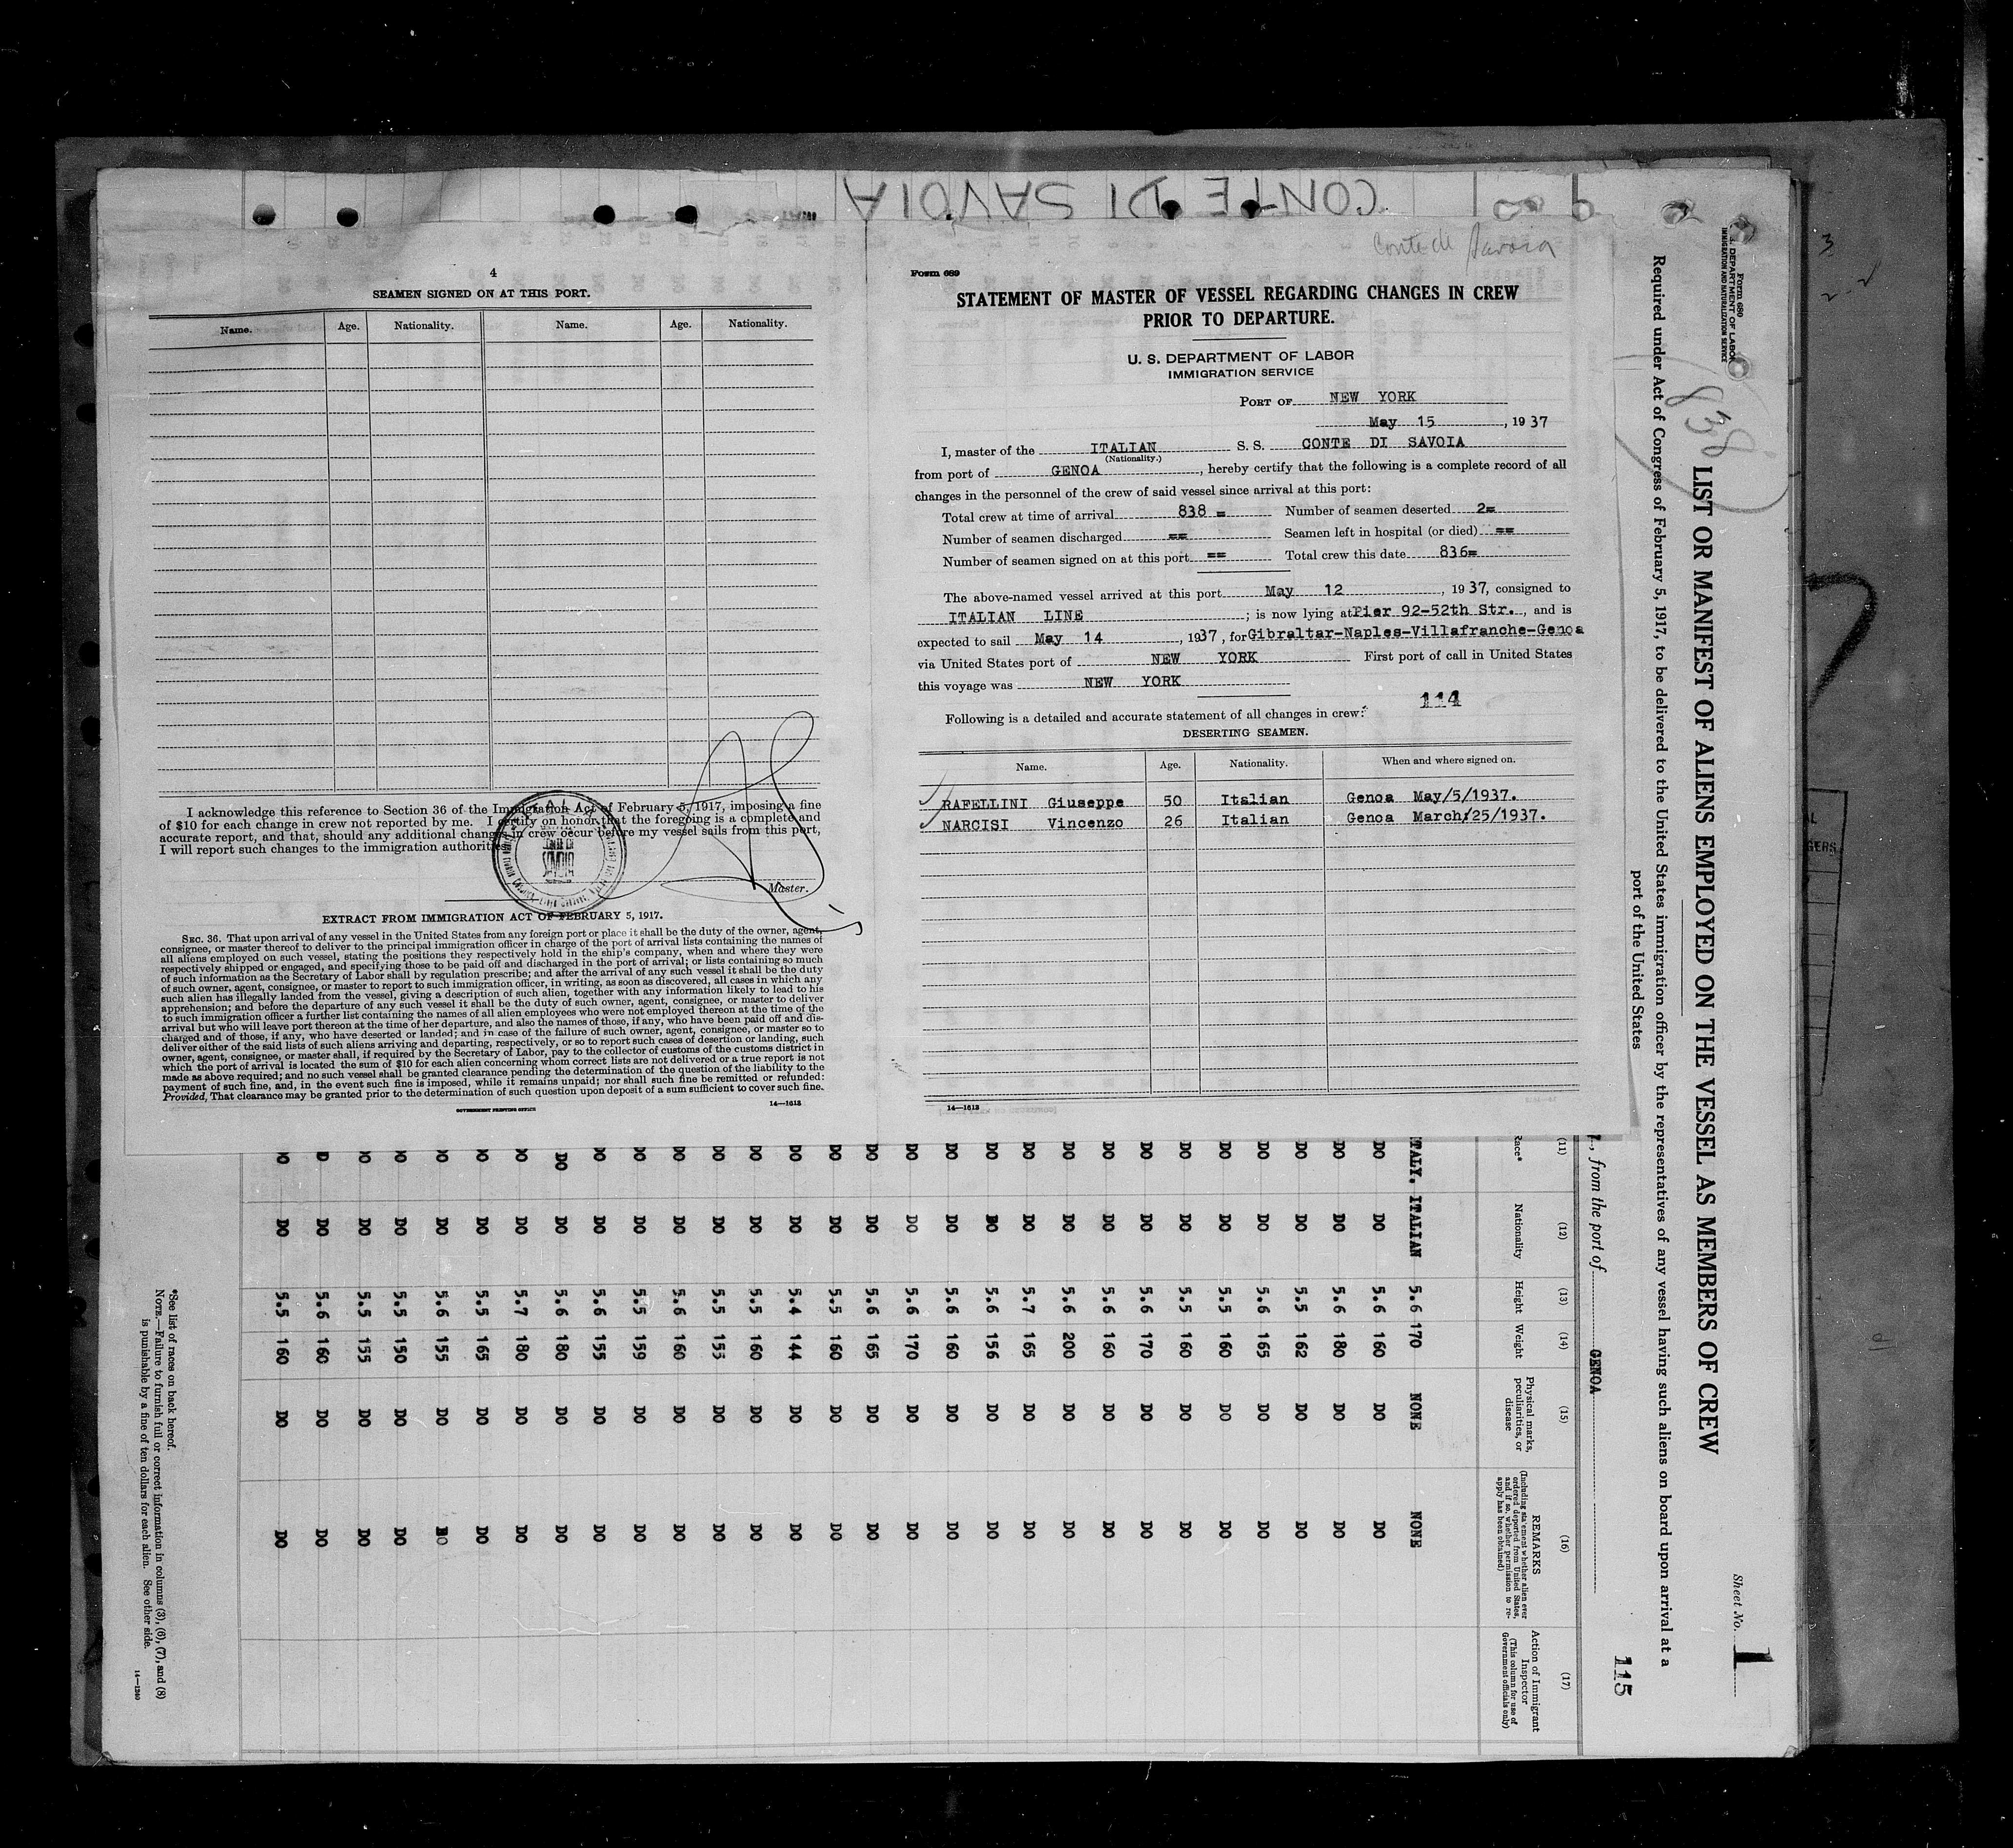 CONTE DI SAVOIA
Conte di Savoia
4
SEAMEN SIGNED ON AT THIS PORT.
Name. Age. Nationality. Name. Age. Nationality.
I acknowledge this reference to Section 36 of the Immigration Act of February 5, 1917, imposing a fine
of $10 for each change in crew not reported by me. I certify on honor that the foregoing is a complete and
accurate report, and that, should any additional changes in crew occur before my vessel sails from this port,
I will report such changes to the immigration authorities.
CONTE DI
SAVOIA
Master.
EXTRACT FROM IMMIGRATION ACT OF FEBRUARY 5, 1917.
SEC. 36. That upon arrival of any vessel in the United States from any foreign port or place it shall be the duty of the owner, agent,
consignee, or master thereof to deliver to the principal immigration officer in charge of the port of arrival lists containing the names of
all aliens employed on such vessel, stating the positions they respectively hold in the ship's company, when and where they were
respectively shipped or engaged, and specifying those to be paid off and discharged in the port of arrival; or lists containing so much
of such information as the Secretary of Labor shall by regulation prescribe; and after the arrival of any such vessel it shall be the duty
of such owner, agent, consignee, or master to report to such immigration officer, in writing, as soon as discovered, all cases in which any
such alien has illegally landed from the vessel, giving a description of such alien, together with any information likely to lead to his
apprehension; and before the departure of any such vessel it shall be the duty of such owner, agent, consignee, or master to deliver
to such immigration officer a further list containing the names of all alien employees who were not employed thereon at the time of the
arrival but who will leave port thereon at the time of her departure, and also the names of those, if any, who have been paid off and dis-
charged and of those, if any, who have deserted or landed; and in case of the failure of such owner, agent, consignee, or master so to
deliver either of the said lists of such aliens arriving and departing, respectively, or so to report such cases of desertion or landing, such
owner, agent, consignee, or master shall, if required by the Secretary of Labor, pay to the collector of customs of the customs district in
which the port of arrival is located the sum of $10 for each alien concerning whom correct lists are not delivered or a true report is not
made as above required; and no such vessel shall be granted clearance pending the determination of the question of the liability to the
payment of such fine, and, in the event such fine is imposed, while it remains unpaid; nor shall such fine be remitted or refunded:
Provided, That clearance may be granted prior to the determination of such question upon deposit of a sum sufficient to cover such fine.
GOVERNMENT PRINTING OFFICE 14—1613
Form 689
STATEMENT OF MASTER OF VESSEL REGARDING CHANGES IN CREW
PRIOR TO DEPARTURE.
U. S. DEPARTMENT OF LABOR
IMMIGRATION SERVICE
PORT OF NEW YORK
May 15, 1937
I, master of the ITALIAN S. S. CONTE DI SAVOIA
(Nationality.)
from port of GENOA, hereby certify that the following is a complete record of all
changes in the personnel of the crew of said vessel since arrival at this port:
Total crew at time of arrival 838 = Number of seamen deserted 2=
Number of seamen discharged == Seamen left in hospital (or died) ==
Number of seamen signed on at this port == Total crew this date 836=
The above-named vessel arrived at this port May 12, 1937, consigned to
ITALIAN LINE; is now lying at Pier 92-52th Str., and is
expected to sail May 14, 1937, for Gibraltar-Naples-Villafranche-Genoa
via United States port of NEW YORK First port of call in United States
this voyage was NEW YORK
114
Following is a detailed and accurate statement of all changes in crew:
DESERTING SEAMEN.
Name. Age. Nationality. When and where signed on.
RAFELLINI Giuseppe 50 Italian Genoa May/5/1937.
NARCISI Vincenzo 26 Italian Genoa March/25/1937.
14—1613
Form 680
U. S. DEPARTMENT OF LABOR
IMMIGRATION AND NATURALIZATION SERVICE
838
Sheet No. 1
LIST OR MANIFEST OF ALIENS EMPLOYED ON THE VESSEL AS MEMBERS OF CREW
Required under Act of Congress of February 5, 1917, to be delivered to the United States immigration officer by the representatives of any vessel having such aliens on board upon arrival at a
port of the United States
115
, from the port of GENOA
(11) (12) (13) (14) (15) (16) (17)
Race* Nationality Height Weight Physical marks, peculiarities, or disease REMARKS (Including statement whether alien ever ordered deported from United States, and if so, whether permission to re-apply has been obtained) Action of Immigrant Inspector (This column for use of Government officials only)
ITALY. ITALIAN 5.6 170 NONE NONE
DO DO 5.6 160 DO DO
DO DO 5.6 180 DO DO
DO DO 5.5 162 DO DO
DO DO 5.6 165 DO DO
DO DO 5.5 160 DO DO
DO DO 5.5 160 DO DO
DO DO 5.6 170 DO DO
DO DO 5.6 160 DO DO
DO DO 5.6 200 DO DO
DO DO 5.7 165 DO DO
DO DO 5.6 156 DO DO
DO DO 5.6 160 DO DO
DO DO 5.6 170 DO DO
DO DO 5.6 165 DO DO
DO DO 5.5 160 DO DO
DO DO 5.4 144 DO DO
DO DO 5.5 160 DO DO
DO DO 5.5 155 DO DO
DO DO 5.6 160 DO DO
DO DO 5.5 159 DO DO
DO DO 5.6 155 DO DO
DO DO 5.6 180 DO DO
DO DO 5.7 180 DO DO
DO DO 5.5 165 DO DO
DO DO 5.6 155 DO DO
DO DO 5.5 150 DO DO
DO DO 5.5 155 DO DO
D DO 5.6 160 DO DO
DO DO 5.5 160 DO DO
*See list of races on back hereof.
NOTE.—Failure to furnish full or correct information in columns (3), (6), (7), and (8)
is punishable by a fine of ten dollars for each alien. See other side.
14—1240